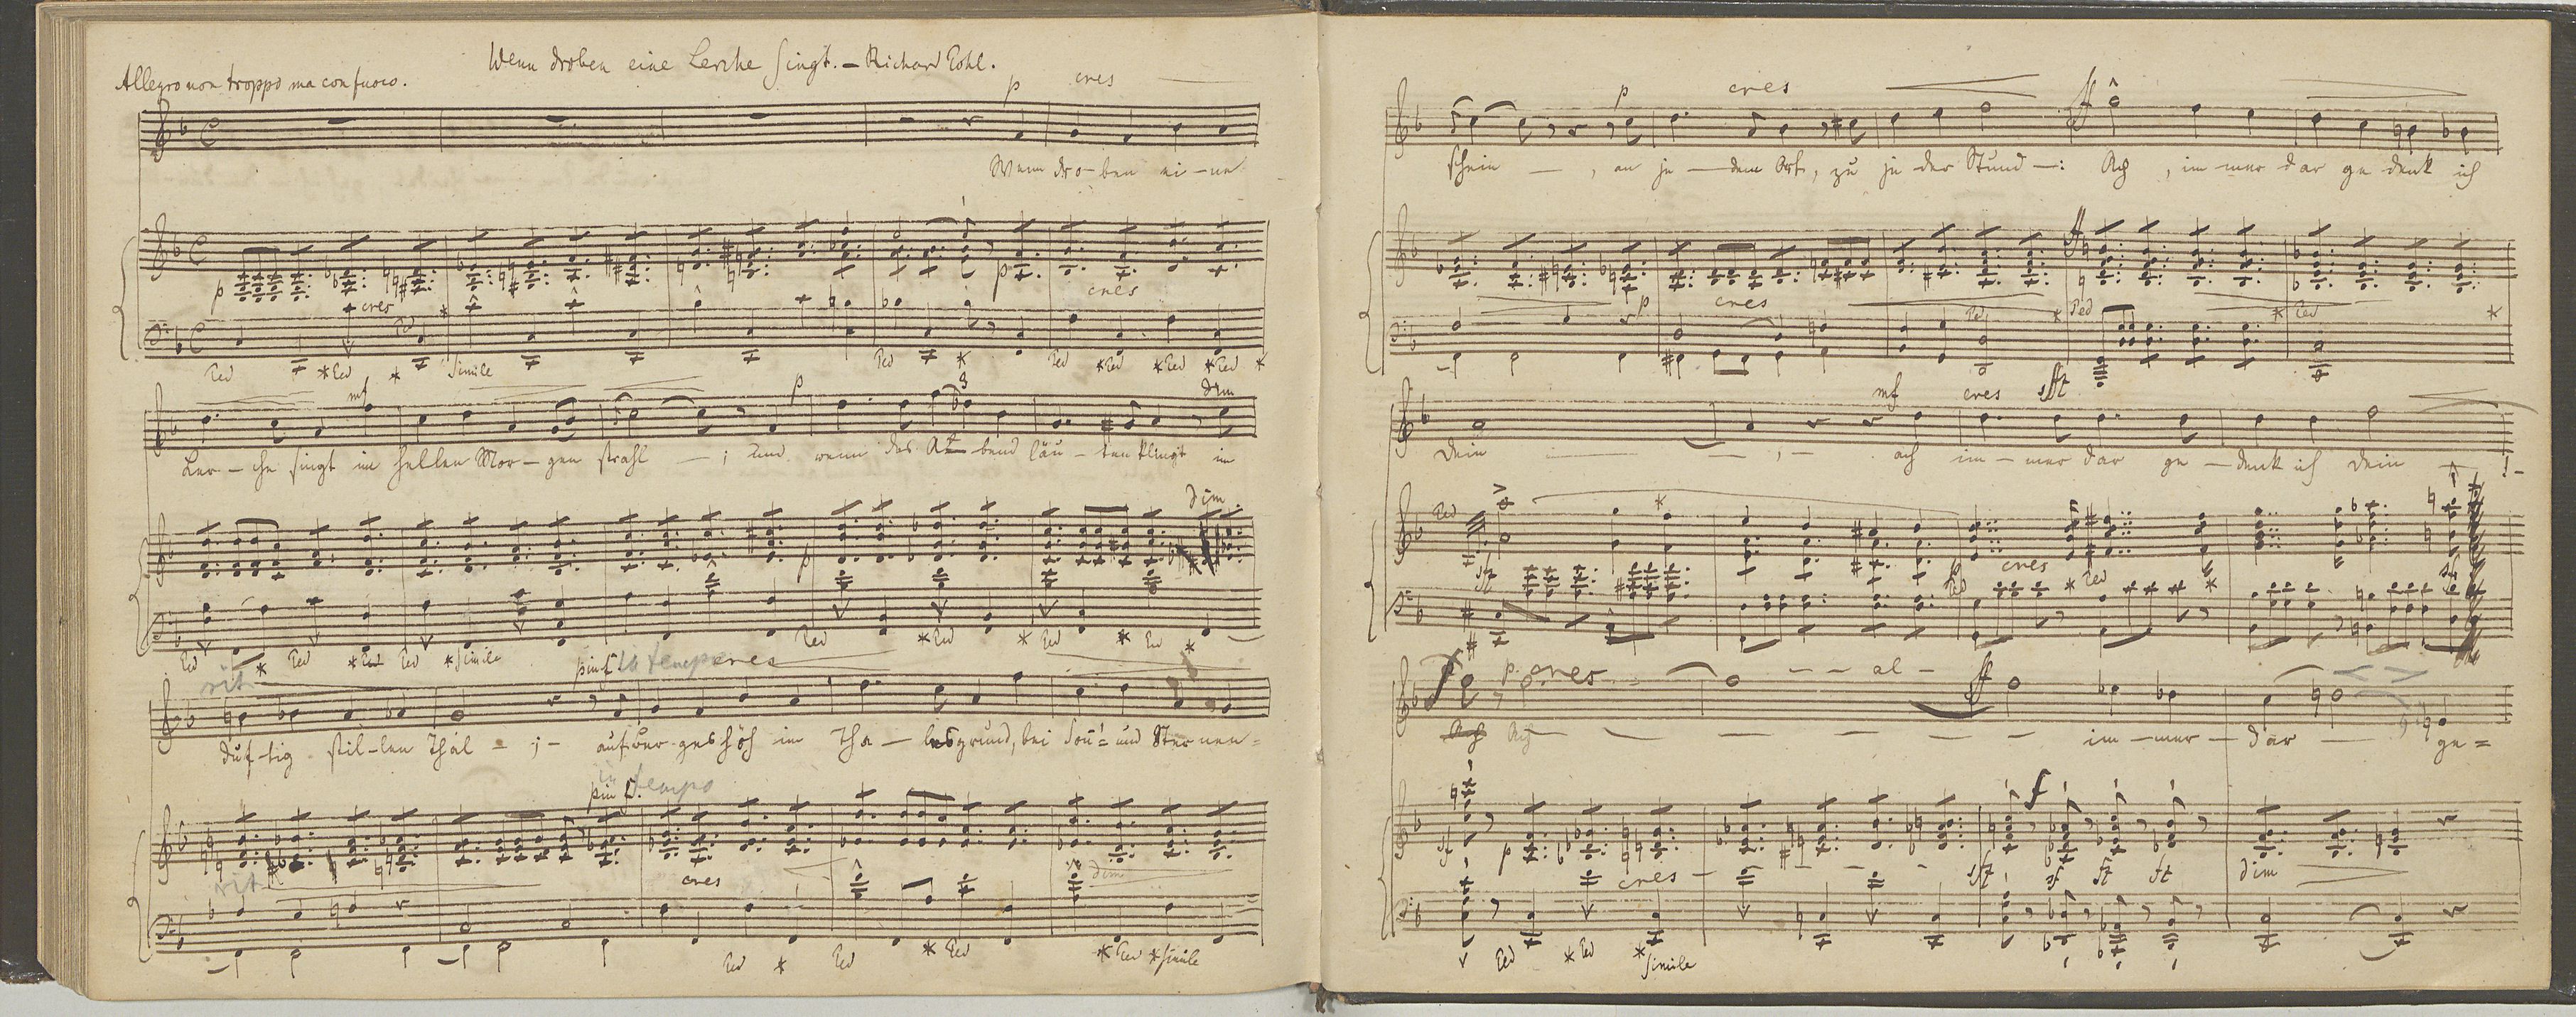 Wenn droben eine Lerche singt. – Richard Pohl.
Allegro non troppo ma con fuoco.
p cres
Wenn dro-ben ei-ne
p cres p cres
Ped *Ped * simile Ped * Ped *Ped *Ped *Ped *
mf p 3 dim
Ler-che singt im hellen Mor-gen strahl —; und wenn das A-bend läu-ten klingt im
p dim
Ped * Ped *Ped Ped *simile Ped *Ped * Ped * Ped *
rit. più f in tempo cres
duf-tig stil-len Thal -;- auf Ber-ges höh im Tha-lesgrund, bei Sonn'= und Sternen=
più f. in tempo
rit. cres dim
Ped * Ped *Ped *Ped *simile
p cres ff
schein —, an je-dem Ort, zu je der Stund —: Ach, im mer dar ge denk ich
ff
p cres Ped * Ped * Ped *
mf cres sft
Dein —,- ach im-mer dar ge-denk ich Dein —!-
Ped *
sft p cres sf
Ped * Ped *
f p. cres - - al - ff
Ach Ach — im-mer-dar — ge=
f
sf p cres - sft sf sft sft dim
Ped *Ped *simile